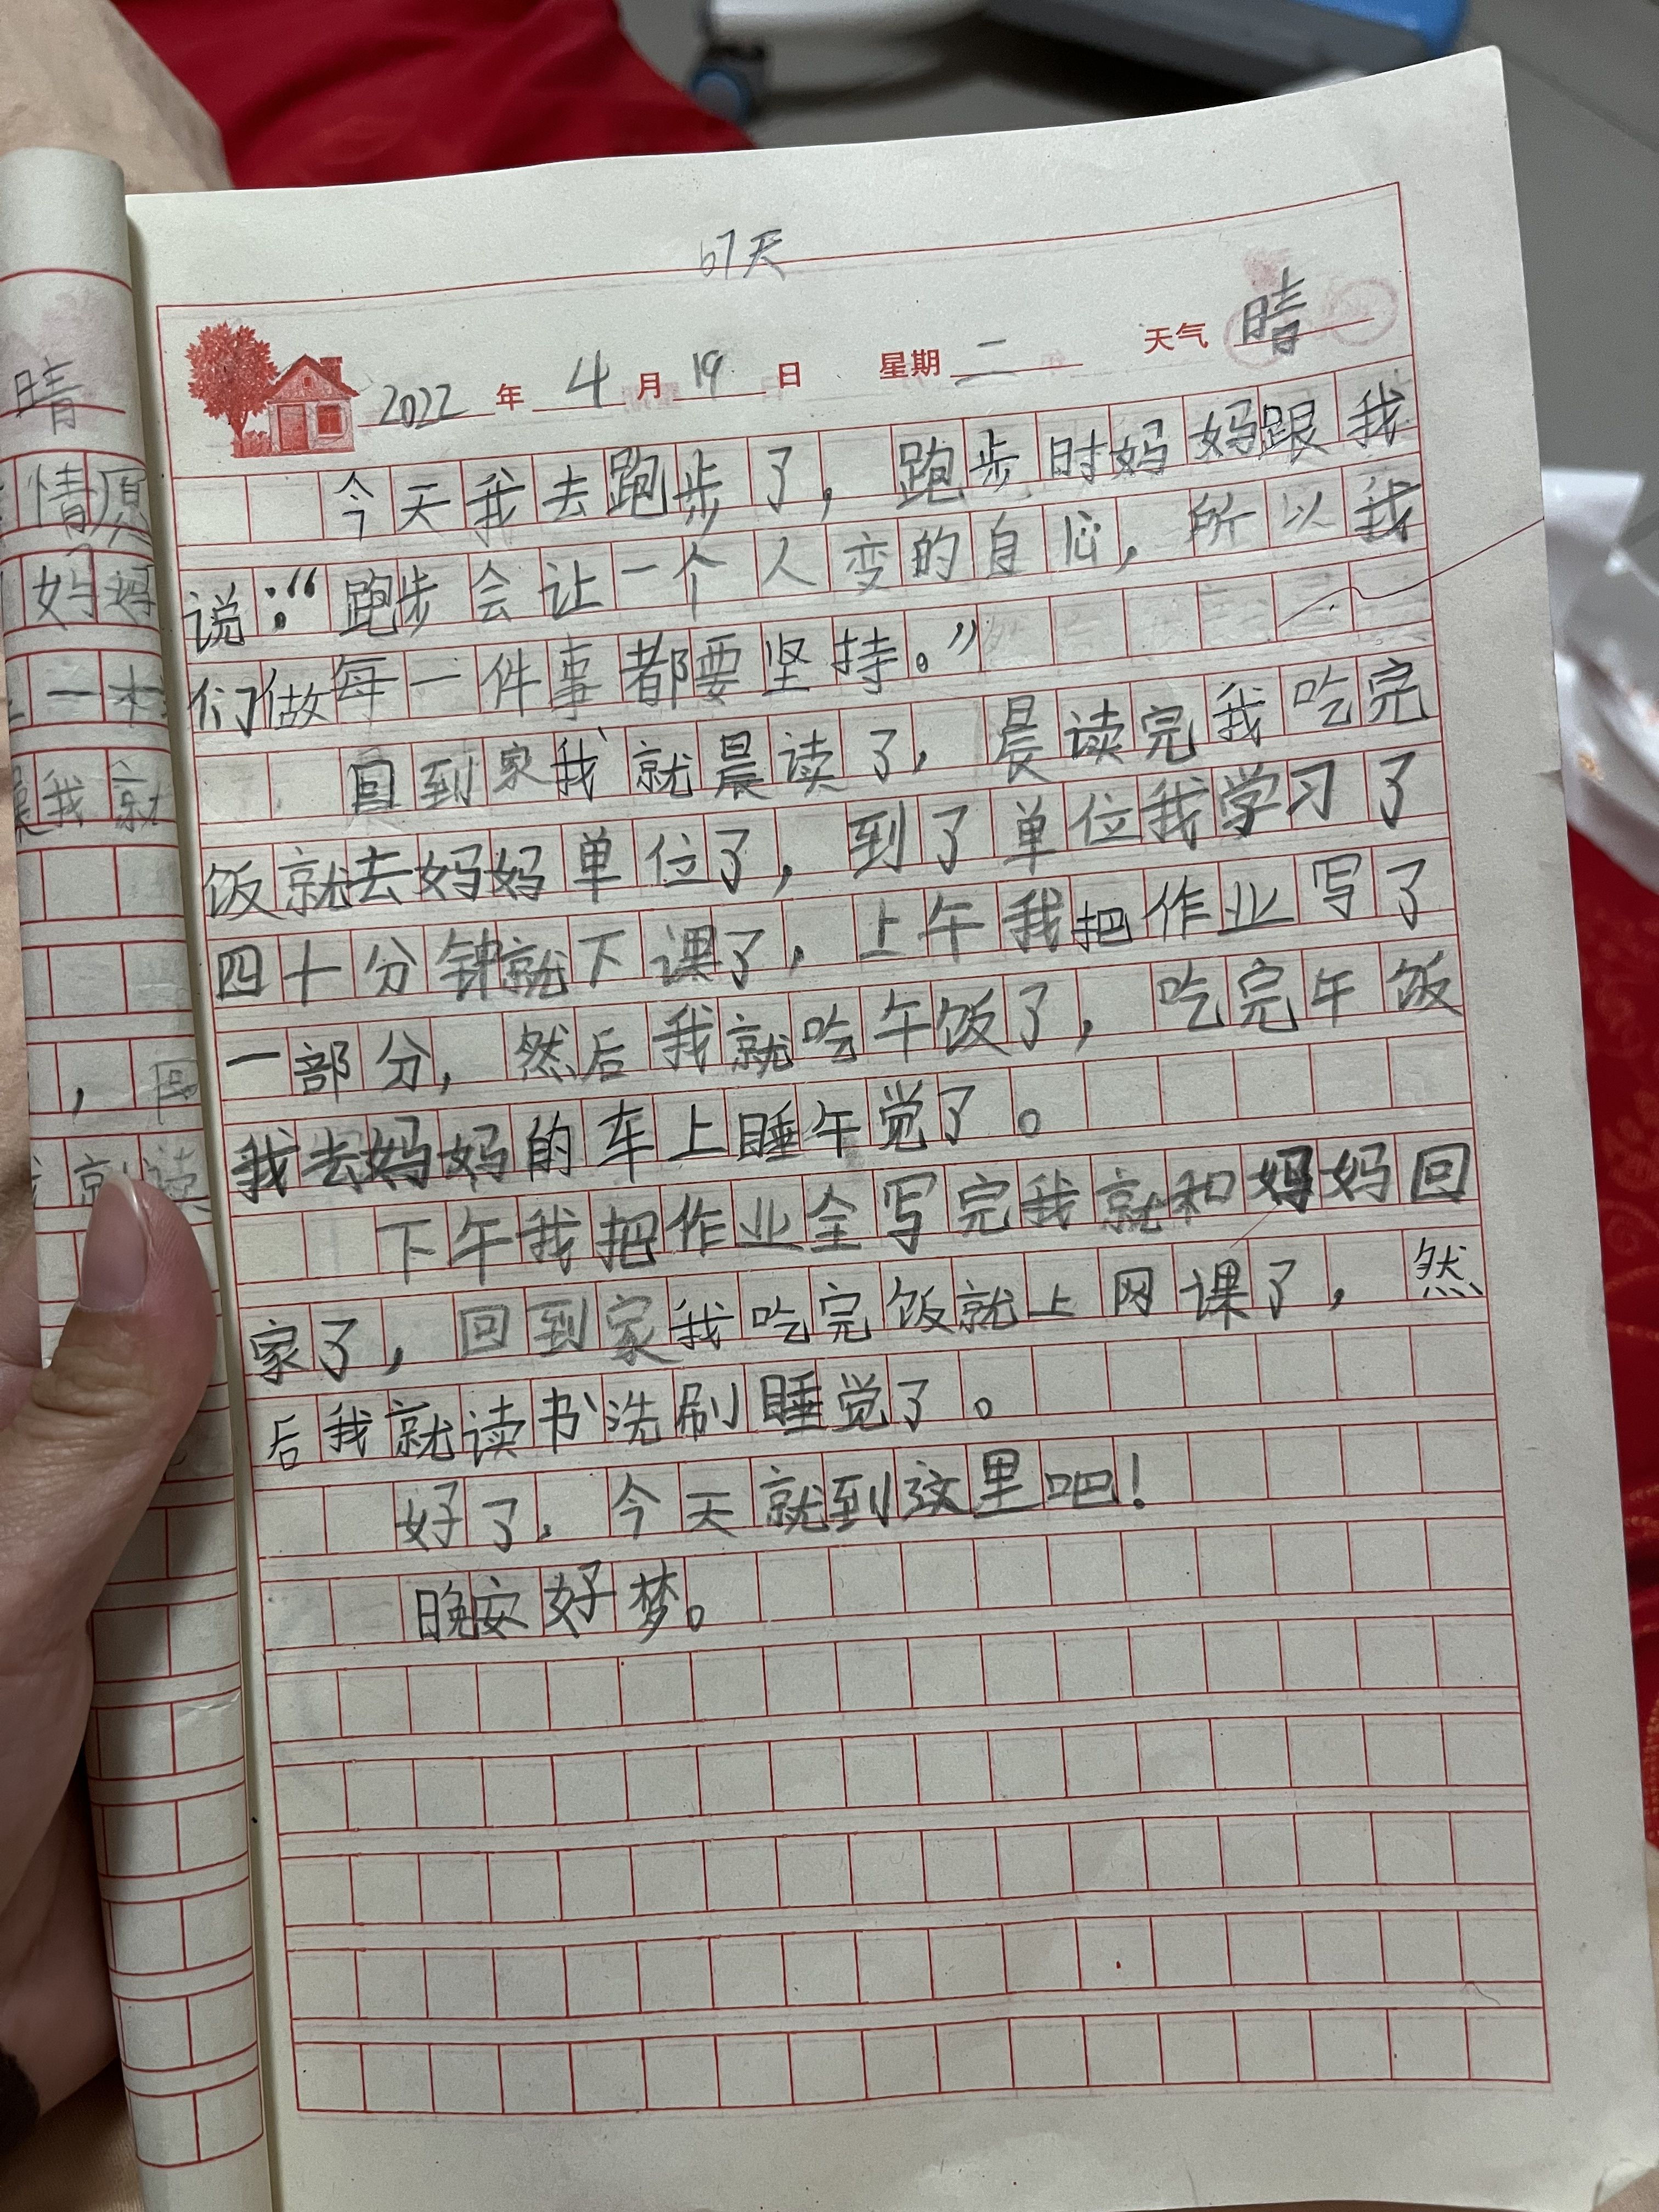 67天
2022年4月19日 星期二 天气晴
今天我去跑步了，跑步时妈妈跟我
说：“跑步会让一个人变的自心，所以我
们做每一件事都要坚持。”
回到家我就晨读了，晨读完我吃完
饭就去妈妈单位了，到了单位我学习了
四十分钟就下课了，上午我把作业写了
一部分，然后我就吃午饭了，吃完午饭
我去妈妈的车上睡午觉了。
下午我把作业全写完我就和妈妈回
家了，回到家我吃完饭就上网课了，然
后我就读书洗刷睡觉了。
好了，今天就到这里吧！
晚安好梦。
晴
情原
妈妈
一本
我就
，回
就读